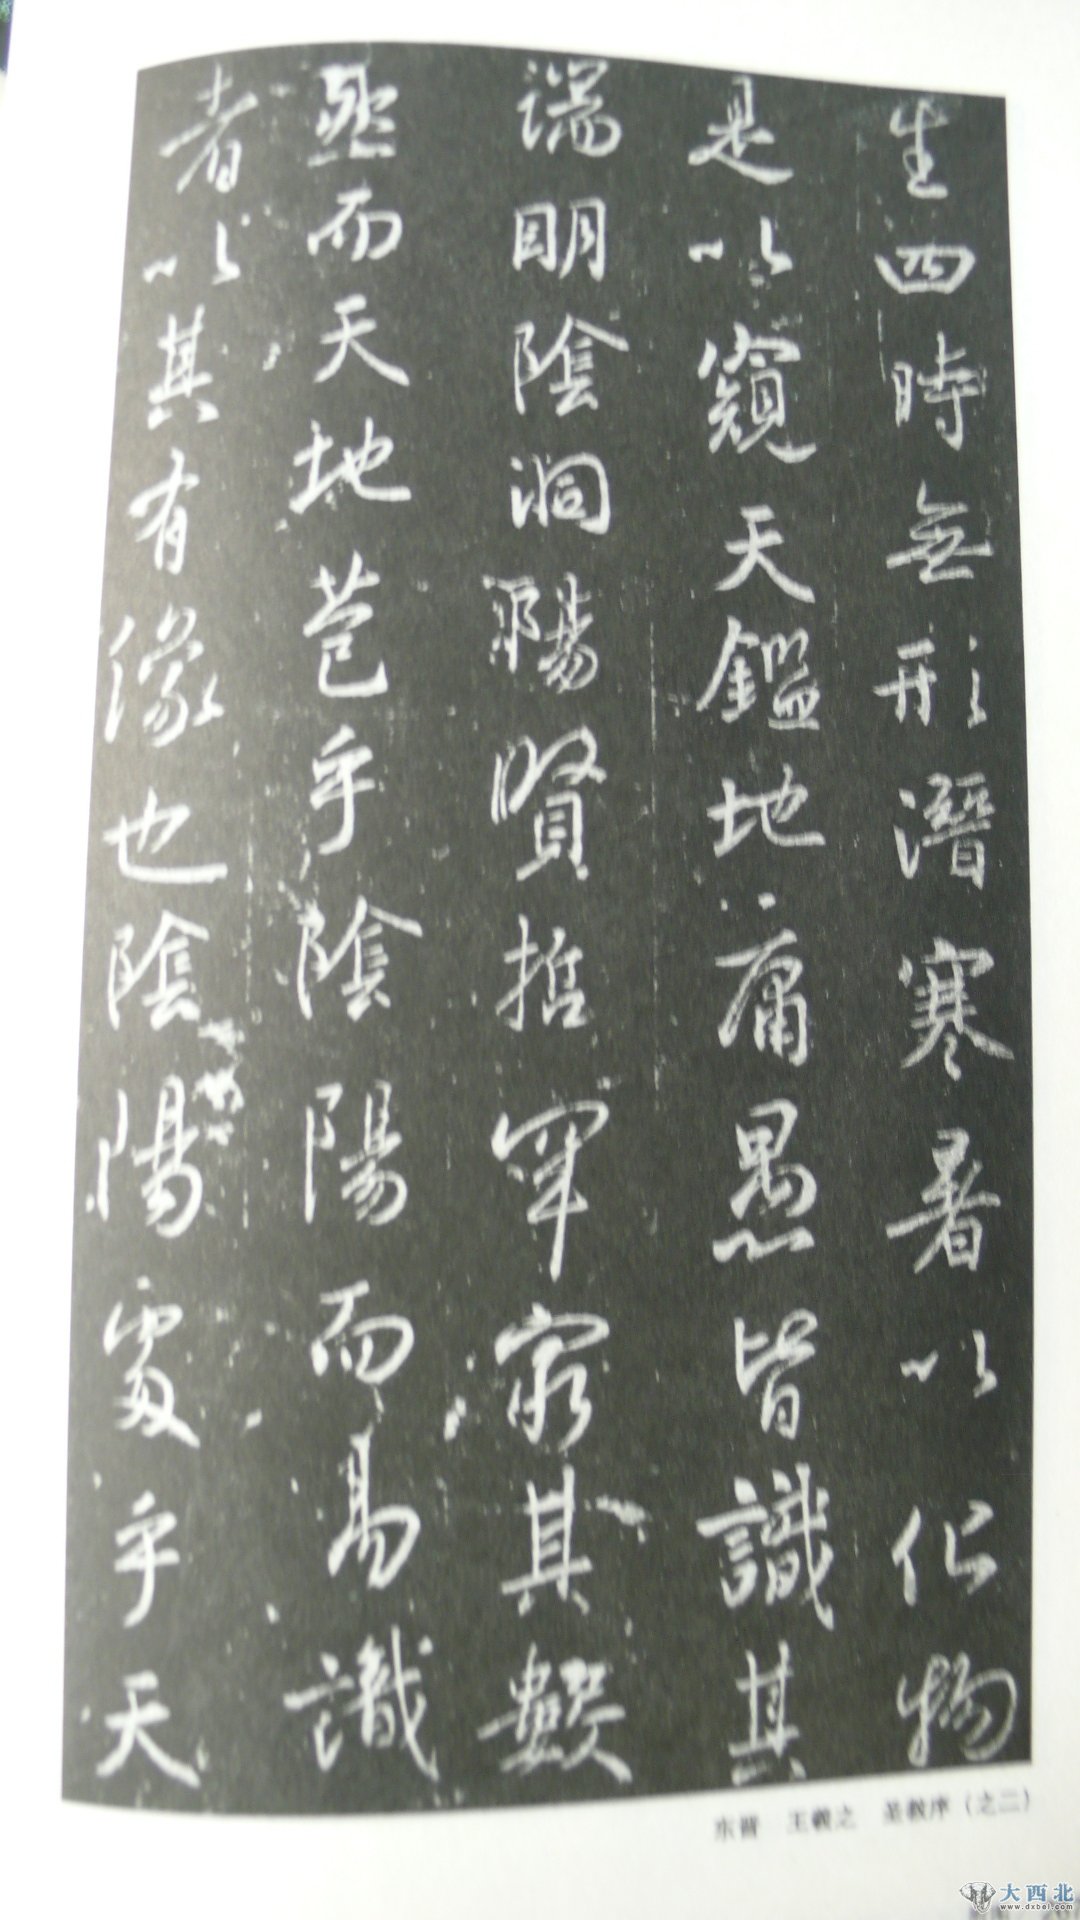 生四時無形潛寒暑以化物
是以窺天鑑地庸愚皆識其
端明陰洞陽賢哲罕窮其數
然而天地苞乎陰陽而易識
者以其有像也陰陽處乎天
东晋 王羲之 圣教序（之二）
大西北
www.dxbei.com